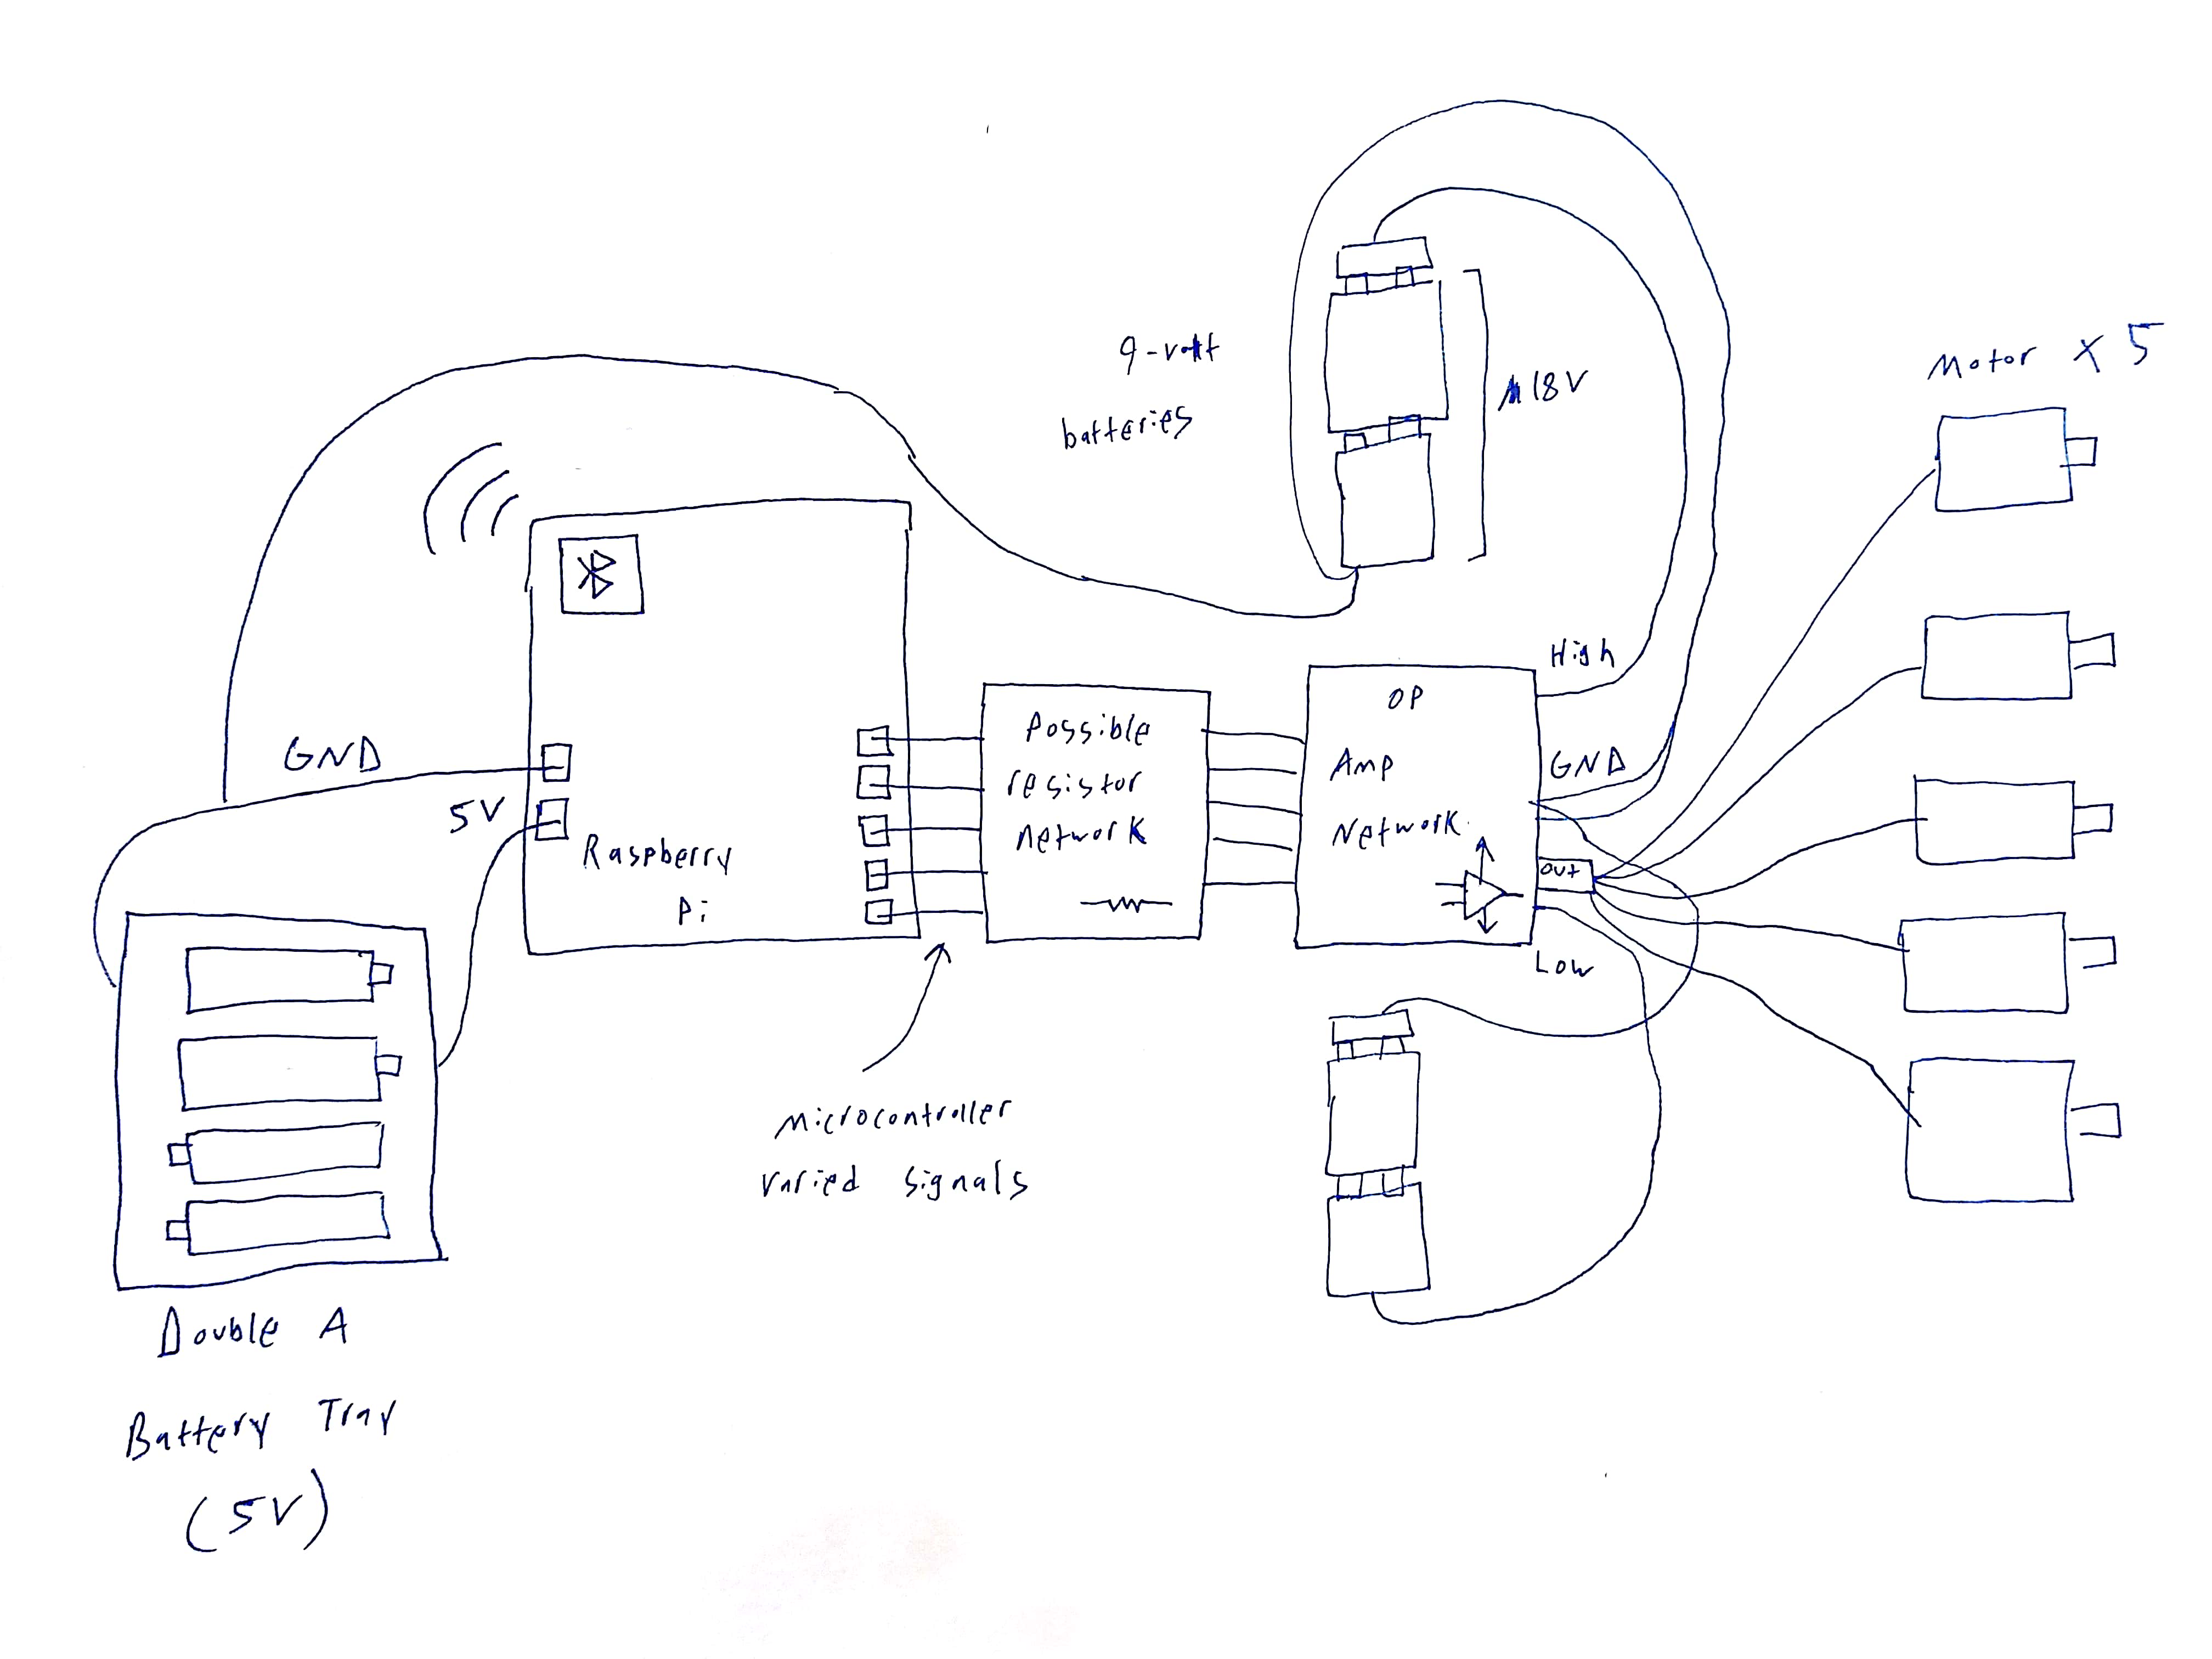 9-volt
batteries
18V
Motor x 5
High
GND
5V
Raspberry
Pi
Possible
resistor
network
OP
Amp
Network
GND
OUT
Low
Microcontroller
varied signals
Double A
Battery Tray
(5V)